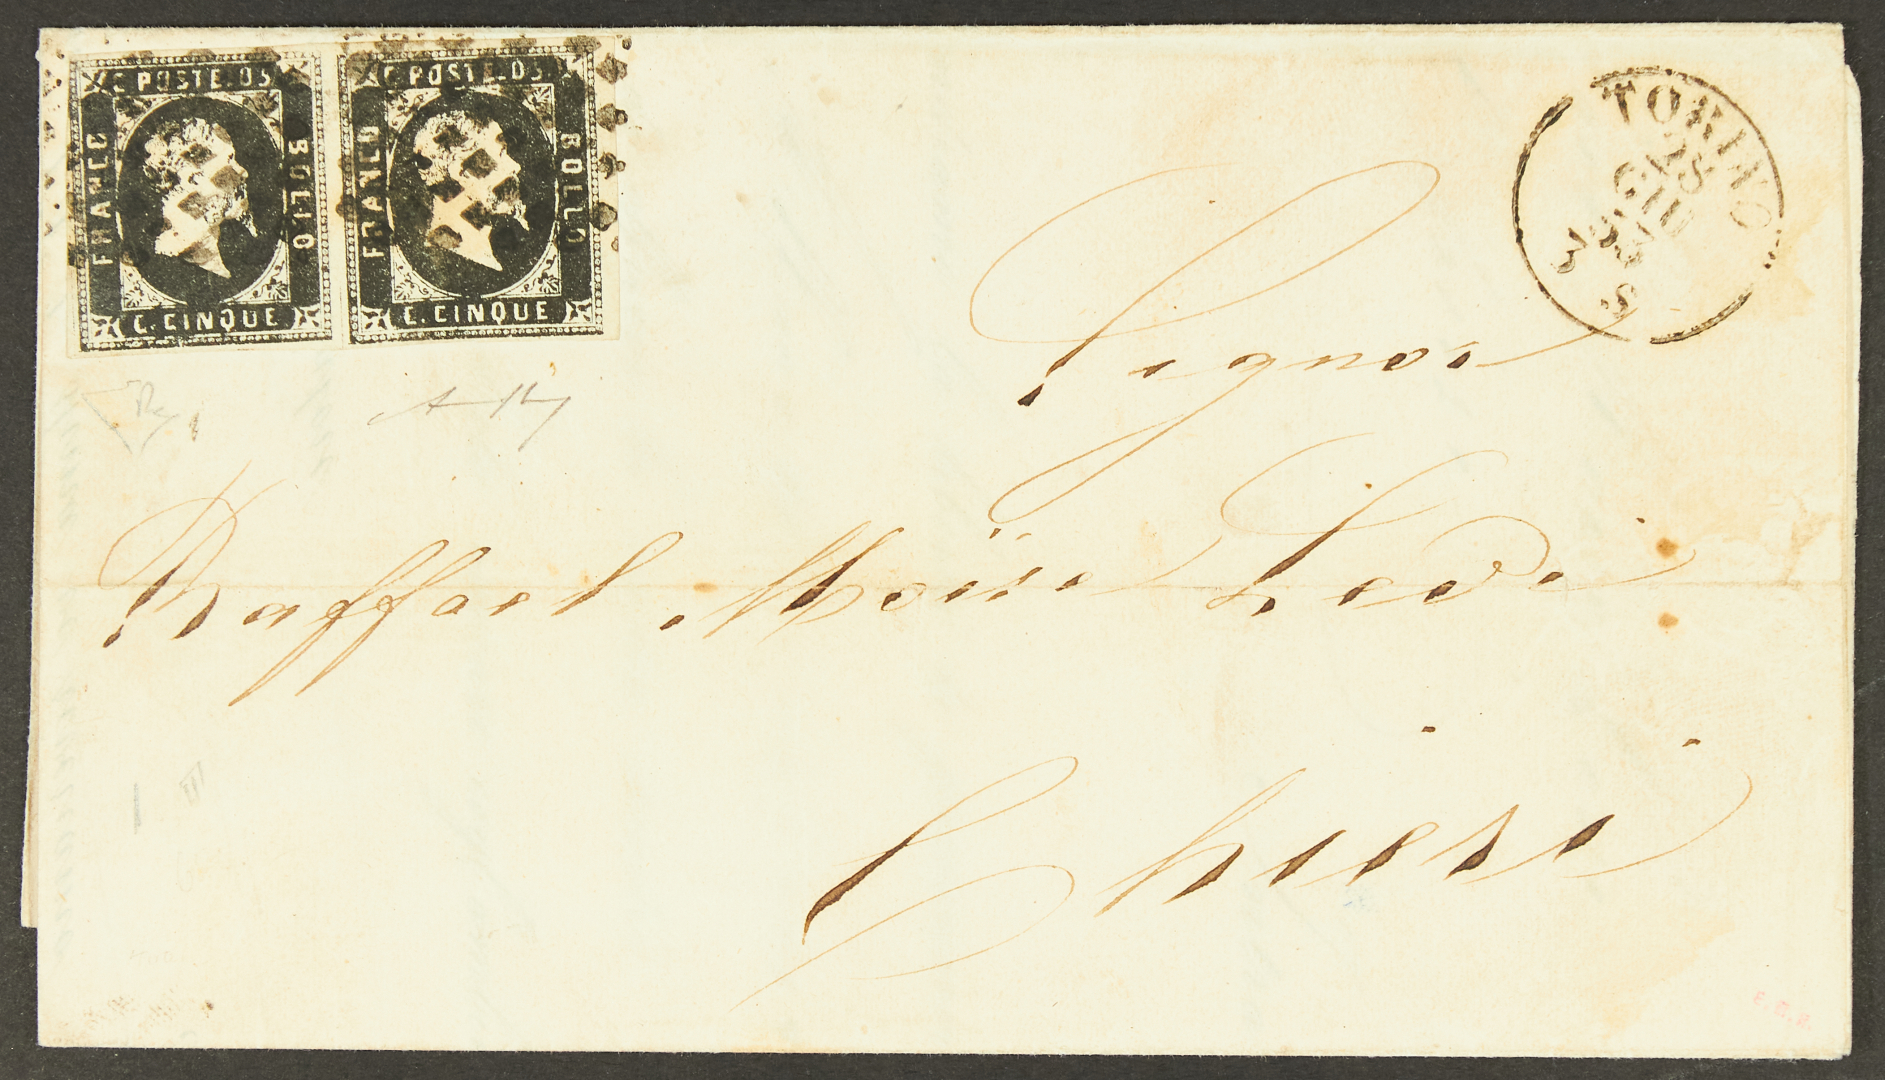 C. POSTE. 05
FRANCO
BOLLO
C. CINQUE
C. POSTE. 05
FRANCO
BOLLO
C. CINQUE
TORINO
28
GIU
S
Signor
Raffael Moïse Levi
Chieri